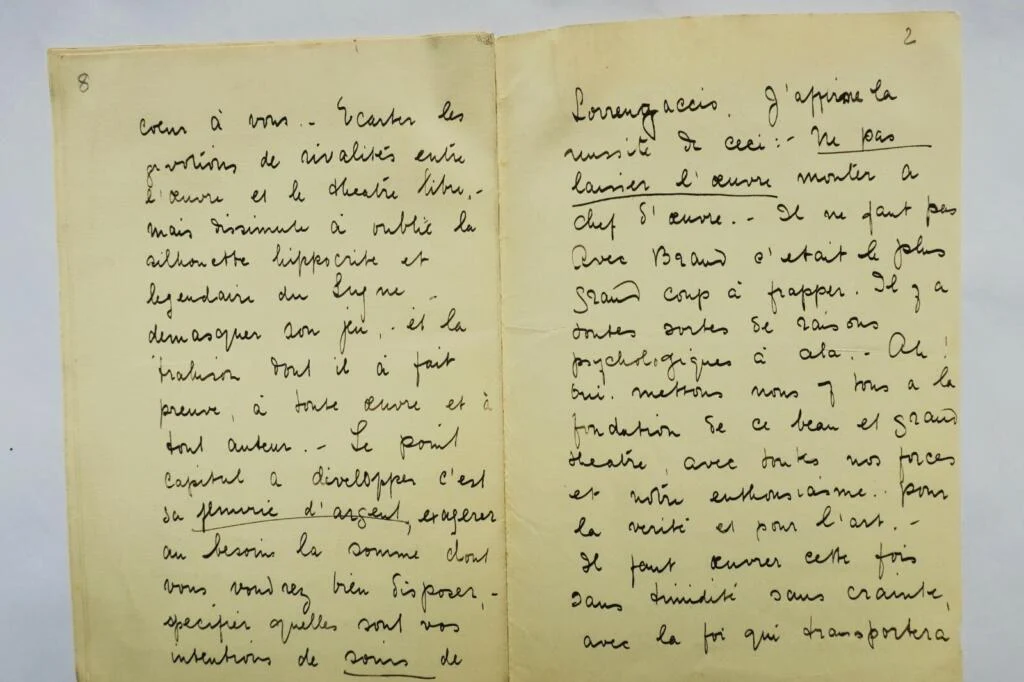 8
coeur à vous. - Ecarter les
de rivalités entre
l'œuvre et le theatre libre, -
mais dissimule à oublié la
silhouette hippocrite et
legendaire du Lugne -
demasquer son jeu, - et la
trahison dont il à fait
preuve, à toute œuvre et à
tout auteur. - Le point
capital a developper c'est
sa penurie d'argent, exagerer
au besoins la somme dont
vous voudrez bien disposer, -
specifier quelles sont vos
intentions de soins de
2
Lorrenzaccio. J'affirme la
reussite de ceci: - Ne pas
laisser l'œuvre monter a
chef d'œuvre. - Il ne faut pas
Avec Brand c'etait le plus
grand coup à frapper. Il y a
toutes sortes de raisons
psychologiques à cela. - Ah!
oui. mettons nous y tous a la
fondation de ce beau et grand
theatre, avec toutes nos forces
et notre enthousiasme.. pour
la verité et pour l'art. -
Il faut œuvrer cette fois
sans timidité sans crainte,
avec la foi qui transportera